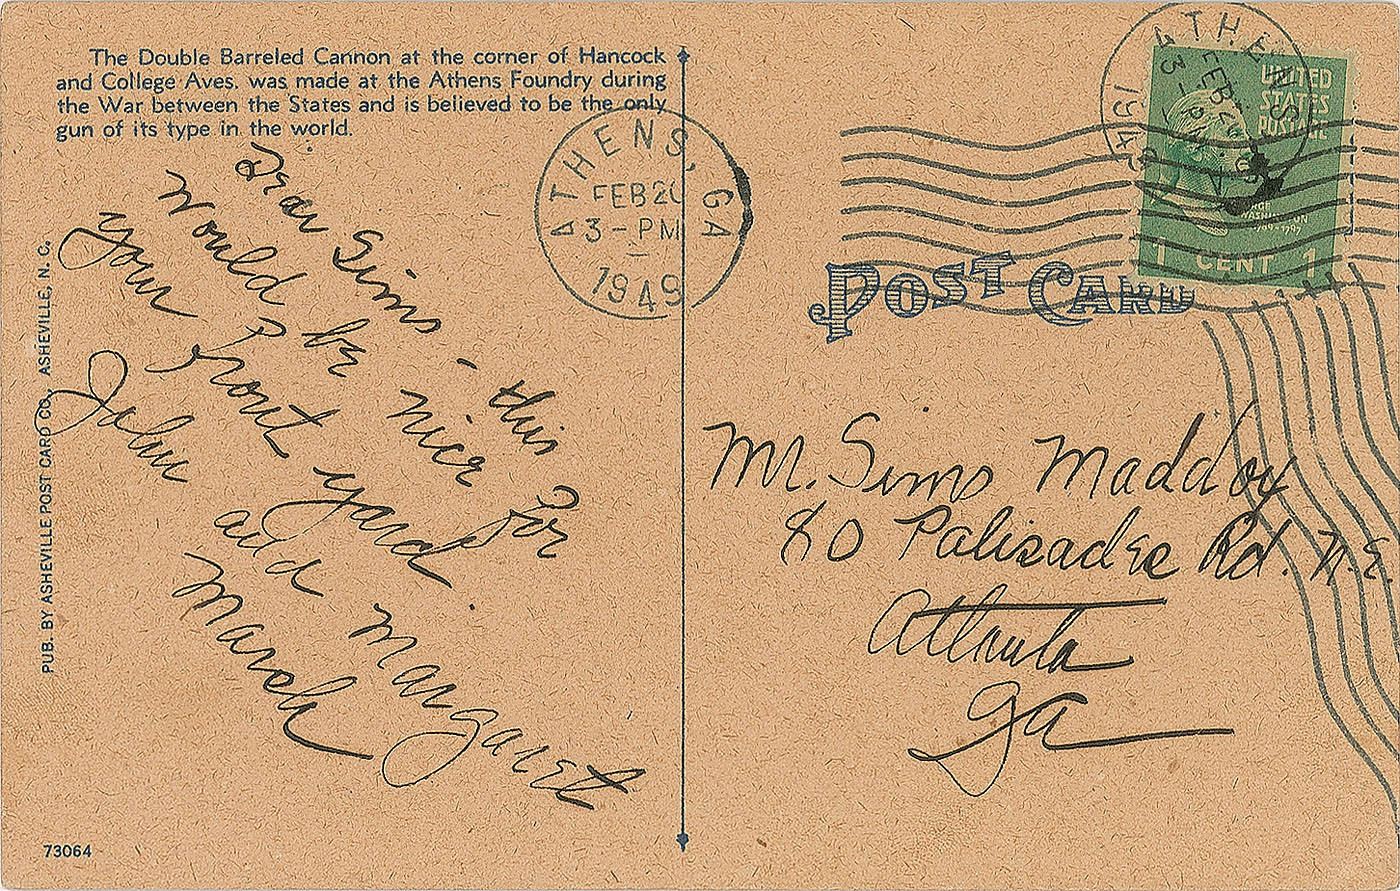 The Double Barreled Cannon at the corner of Hancock
and College Aves. was made at the Athens Foundry during
the War between the States and is believed to be the only
gun of its type in the world.
Dear Sims - this
would be nice for
your front yard.
John and Margaret
March
PUB. BY ASHEVILLE POST CARD CO., ASHEVILLE, N. C.
73064
ATHENS, GA
FEB 20
3 - PM
1949
ATHENS
FEB 20
3 - PM
1949
UNITED
STATES
POSTAGE
WASHINGTON
1789-1797
1 CENT 1
POST CARD
Mr. Sims Maddox
80 Palisades Rd. N.E
Atlanta
Ga